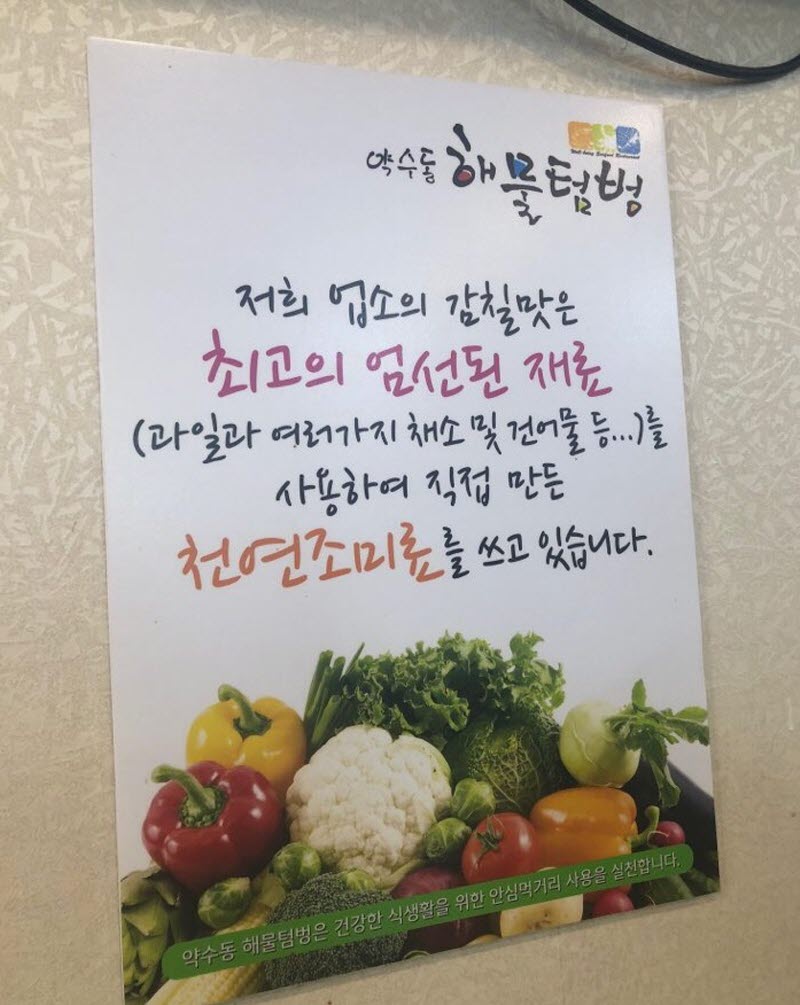 Well-being Seafood Restaurant
약수동 해물텀벙
저희 업소의 감칠맛은
최고의 엄선된 재료
(과일과 여러가지 채소 및 건어물 등...)를
사용하여 직접 만든
천연조미료를 쓰고 있습니다.
약수동 해물텀벙은 건강한 식생활을 위한 안심먹거리 사용을 실천합니다.